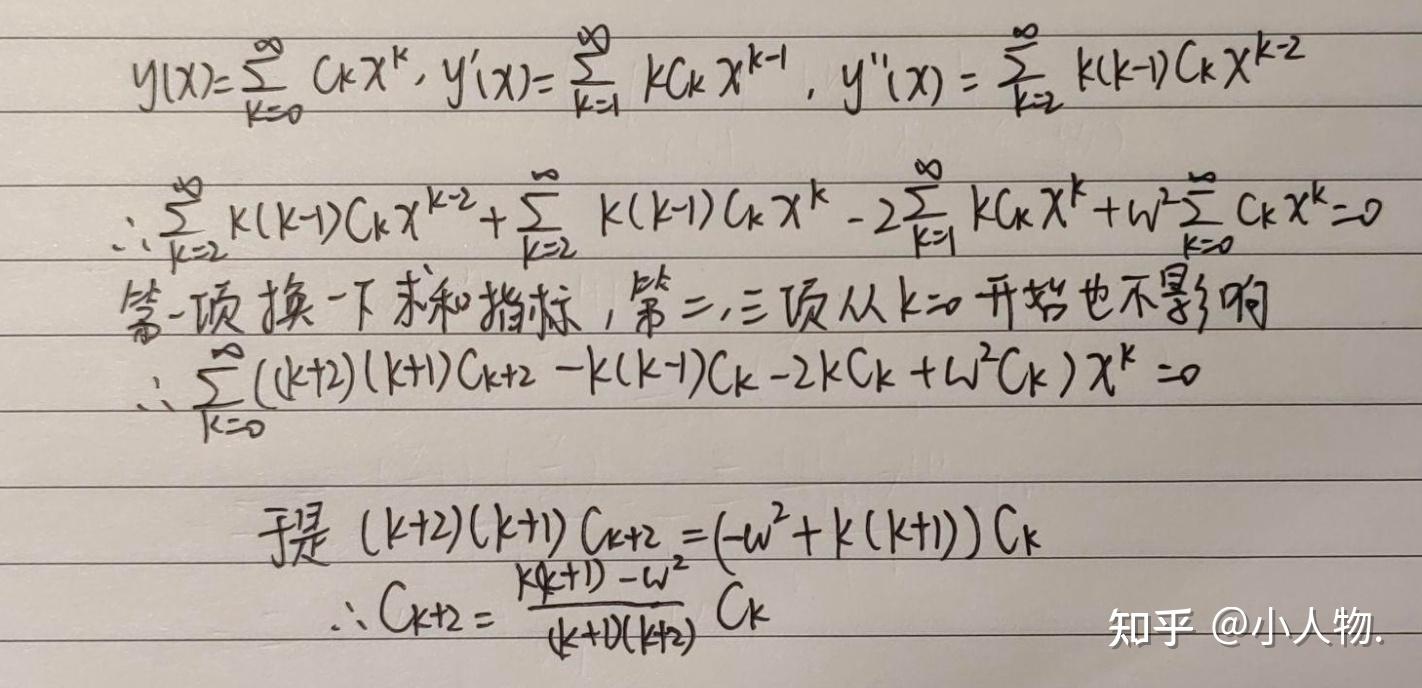 y(x)=∑_{k=0}^{∞} C_k x^k, y'(x)=∑_{k=1}^{∞} kC_k x^{k-1}, y''(x)=∑_{k=2}^{∞} k(k-1)C_k x^{k-2}
∴∑_{k=2}^{∞} k(k-1)C_k x^{k-2}+∑_{k=2}^{∞} k(k-1)C_k x^k-2∑_{k=1}^{∞} kC_k x^k+ω²∑_{k=0}^{∞} C_k x^k=0
第一项换一下求和指标,第二,三项从k=0开始也不影响
∴∑_{k=0}^{∞}((k+2)(k+1)C_{k+2}-k(k-1)C_k-2kC_k+ω²C_k)x^k=0
于是 (k+2)(k+1)C_{k+2}=(-ω²+k(k+1))C_k
∴C_{k+2}=\frac{k(k+1)-ω²}{(k+1)(k+2)}C_k
知乎 @小人物.